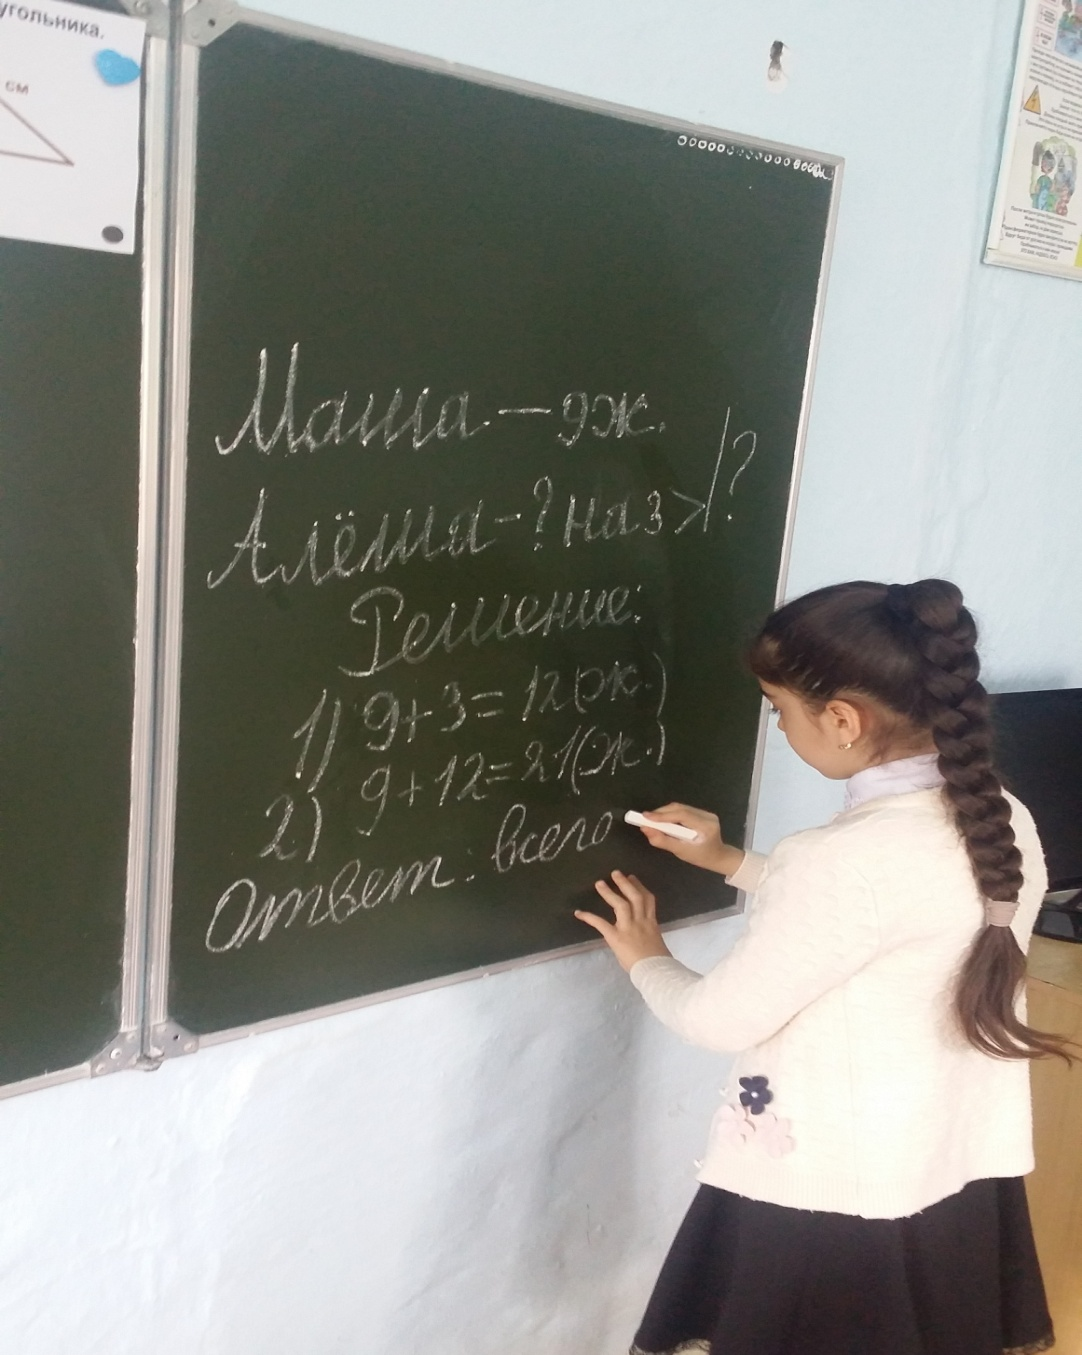 угольника.
см
Маша – 9ж.
Алёша – ? на 3 > ?
Решение:
1) 9+3= 12(ж.)
2) 9+12= 21(ж.)
Ответ: всего